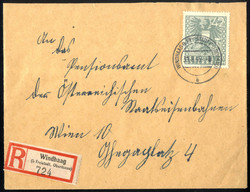 An
das
Pensionsamt
der Österreichischen
Staatseisenbahnen
Wien 10
Ghegaplatz 4
42
R
Windhaag
724